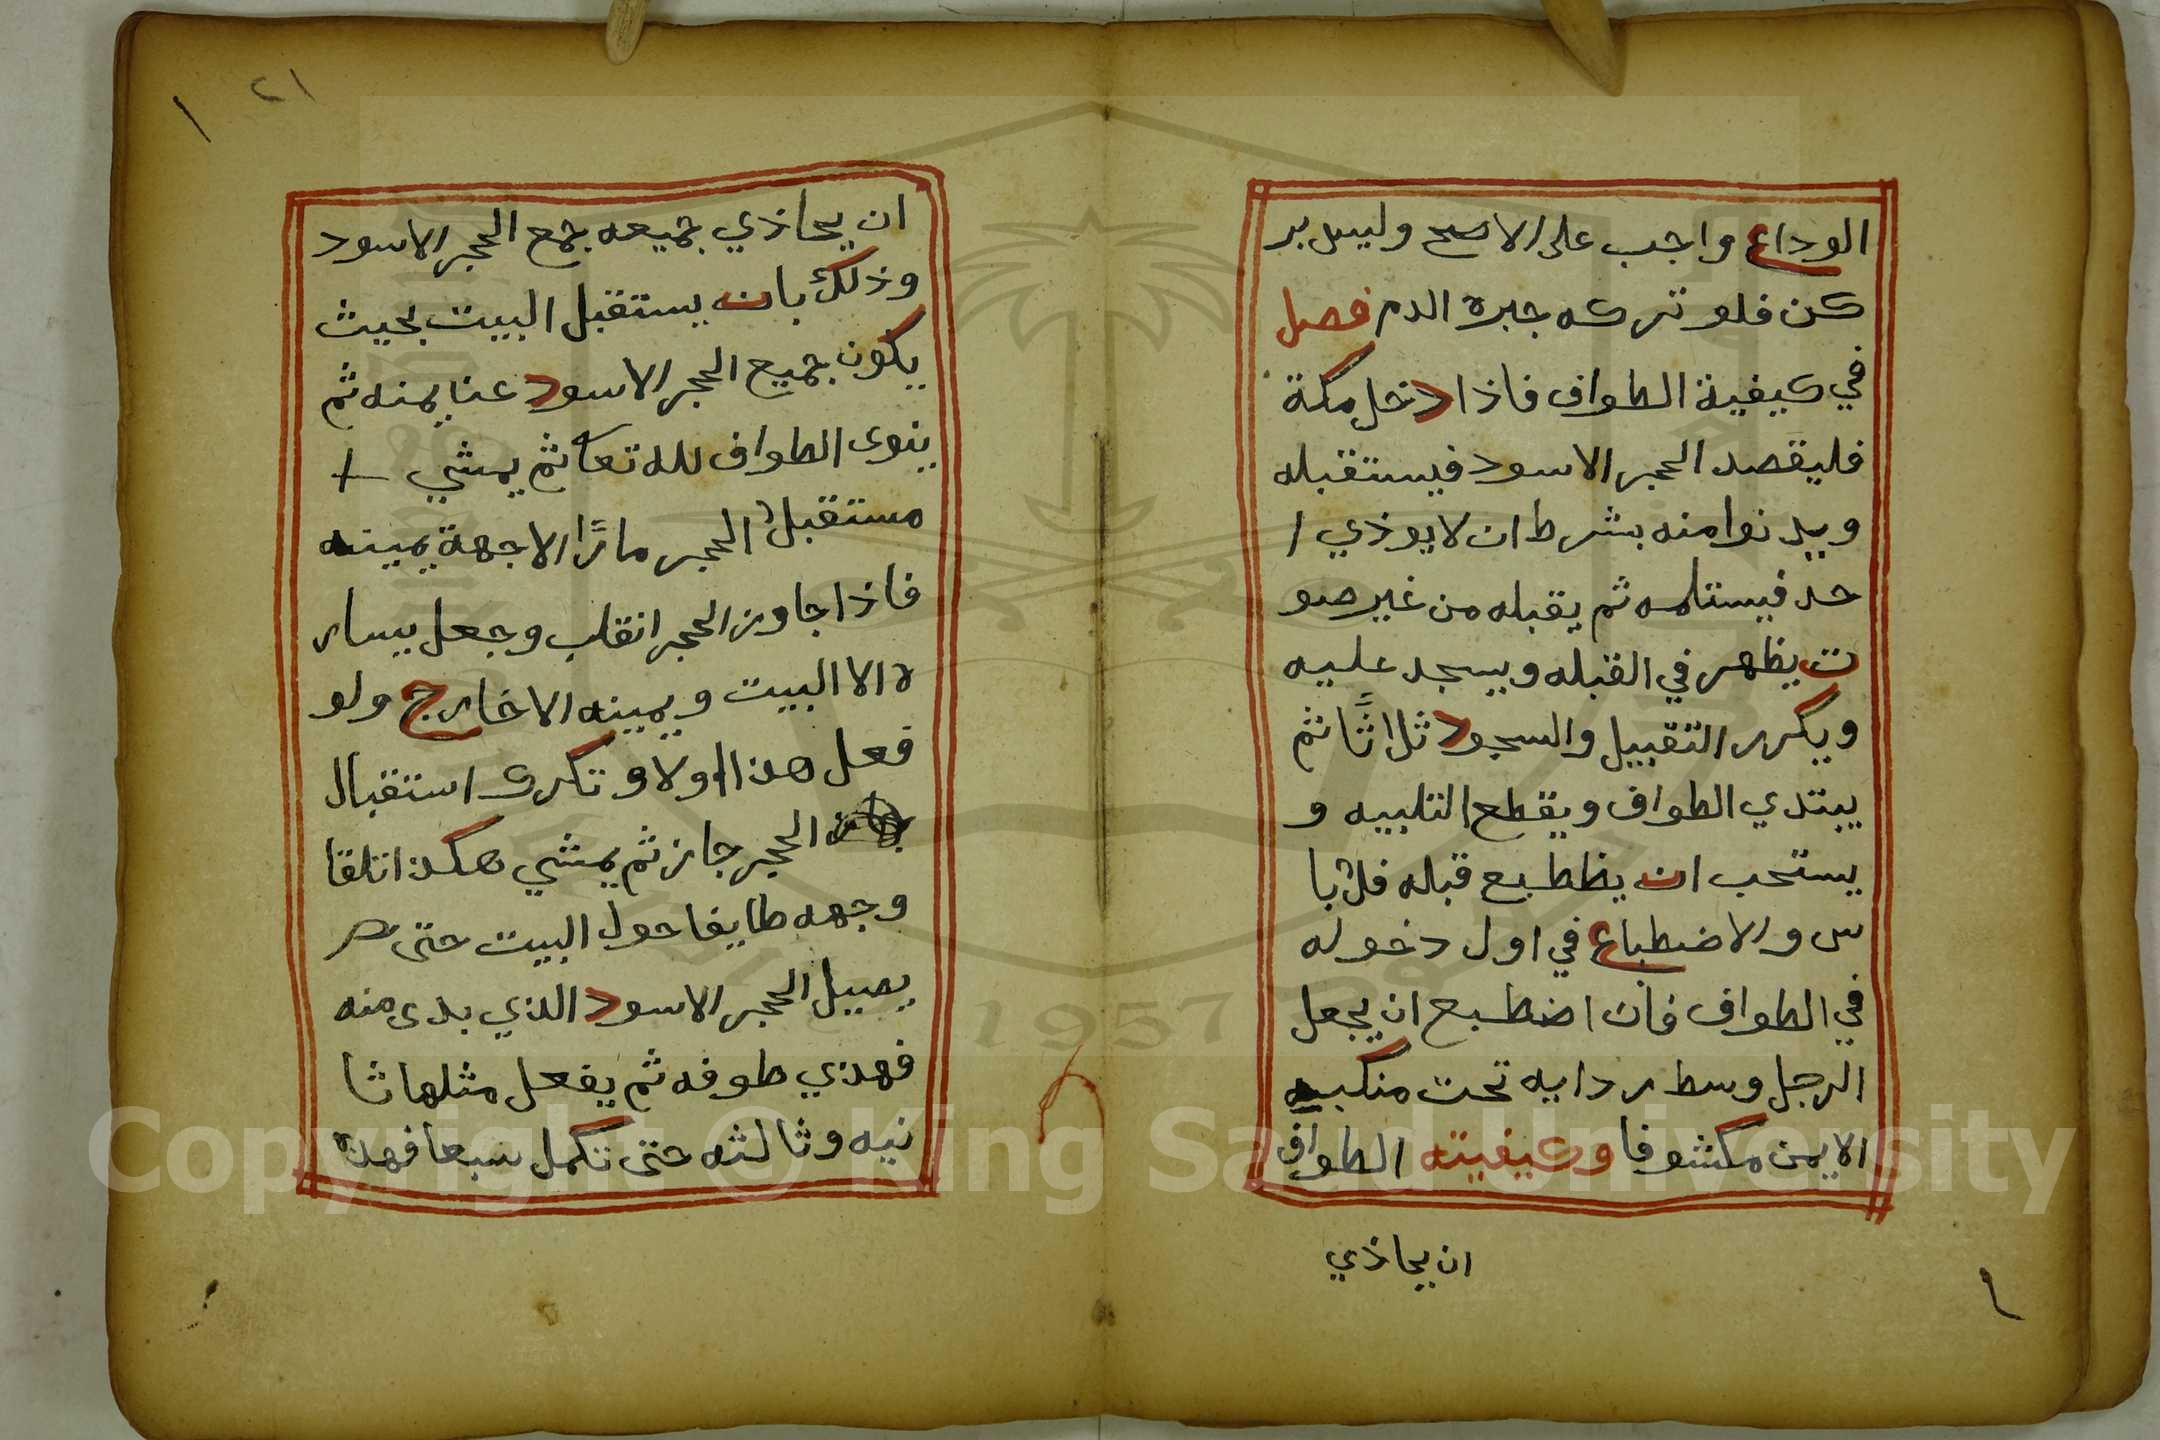 الوداع واجب على الاصح وليس بر
كن فلو تركه جبره الدم فصل
في كيفية الطواف فاذا دخل مكة
فليقصد الحجر الاسود فيستقبله
ويدنوا منه بشرط ان لا يوذي ا
حد فيستلمه ثم يقبله من غير صو
ت يظهر في القبله ويسجد عليه
ويكرر التقبيل والسجود ثلاثا ثم
يبتدي الطواف ويقطع التلبيه و
يستحب ان يظطبع قبله فلا با
س والاضطباع في اول دخوله
في الطواف فان اضطبع ان يجعل
الرجل وسط ردايه تحت منكبيه
الايمن مكشوفا وكيفيته الطواف
ان يحاذي
٢١
ان يحاذي جميعه جمع الحجر الاسود
وذلك بان يستقبل البيت بحيث
يكون جميع الحجر الاسود عن يمنه ثم
ينوى الطواف لله تعا ثم يمشي
مستقبل الحجر مارًا الا جهة يمينه
فاذا جاوز الحجر انقلب وجعل يسار
ه الا البيت ويمينه الا خارج ولو
فعل هذا اولا وترك استقبال
الحجر جاز ثم يمشي هكذا تلقا
وجهه طايفا حول البيت حتى
يصيل الحجر الاسود الذي بدى منه
فهذي طوفه ثم يفعل مثلها ثا
نيه وثالثه حتى تكمل سبعا فهذه
1957
Copyright © King Saud University